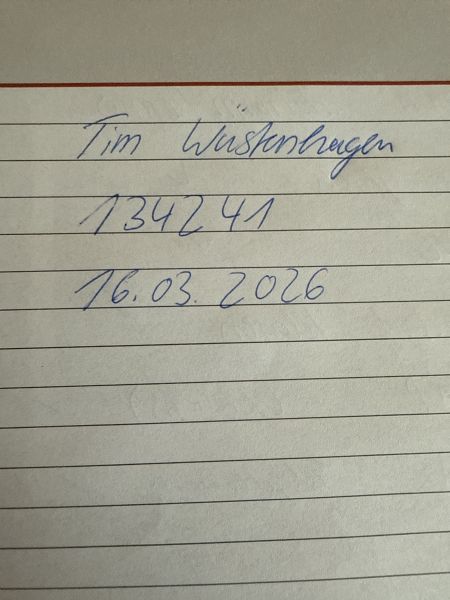 Tim Wüstenhagen
134241
16.03.2026